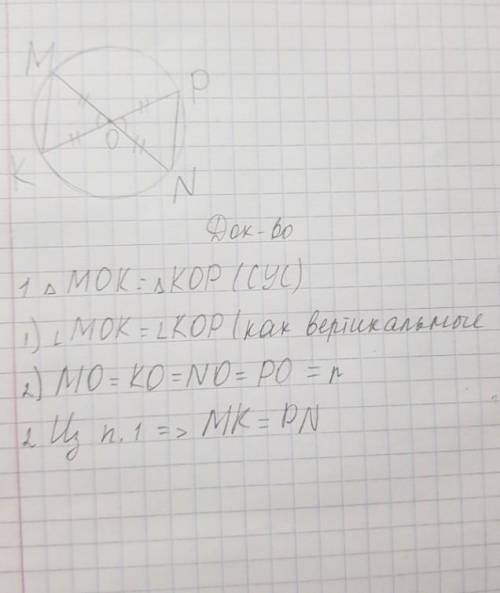 M
P
O
K
N
Док-во
1 △ MOK = △ KOP (СУС)
1) ∠ MOK = ∠ KOP (как вертикальные
2) MO = KO = NO = PO = r
2 Из п. 1 => MK = PN